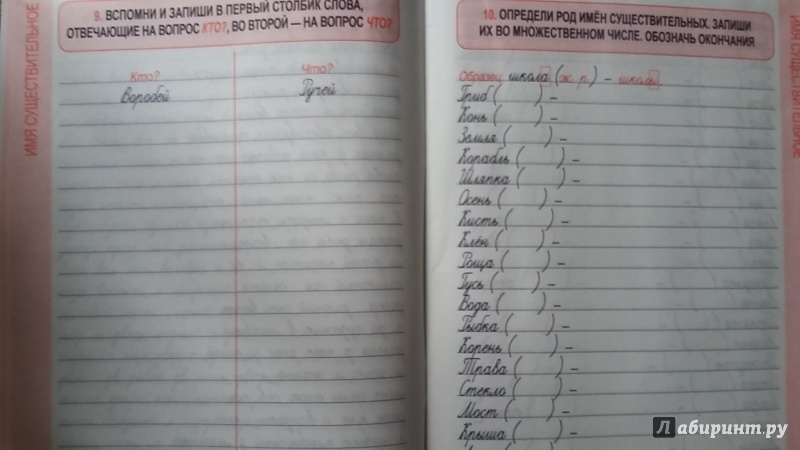 ИМЯ СУЩЕСТВИТЕЛЬНОЕ
9. ВСПОМНИ И ЗАПИШИ В ПЕРВЫЙ СТОЛБИК СЛОВА,
ОТВЕЧАЮЩИЕ НА ВОПРОС КТО?, ВО ВТОРОЙ — НА ВОПРОС ЧТО?
Кто? Что?
Воробей Ручей
10. ОПРЕДЕЛИ РОД ИМЁН СУЩЕСТВИТЕЛЬНЫХ. ЗАПИШИ
ИХ ВО МНОЖЕСТВЕННОМ ЧИСЛЕ. ОБОЗНАЧЬ ОКОНЧАНИЯ
Образец: школа (ж. р.) – школы
Гриб ( ) –
Конь ( ) –
Земля ( ) –
Корабль ( ) –
Шляпка ( ) –
Осень ( ) –
Кисть ( ) –
Клён ( ) –
Роща ( ) –
Гусь ( ) –
Вода ( ) –
Рыбка ( ) –
Корень ( ) –
Трава ( ) –
Стекло ( ) –
Мост ( ) –
Крыша ( ) –
ИМЯ СУЩЕСТВИТЕЛЬНОЕ
Лабиринт.ру